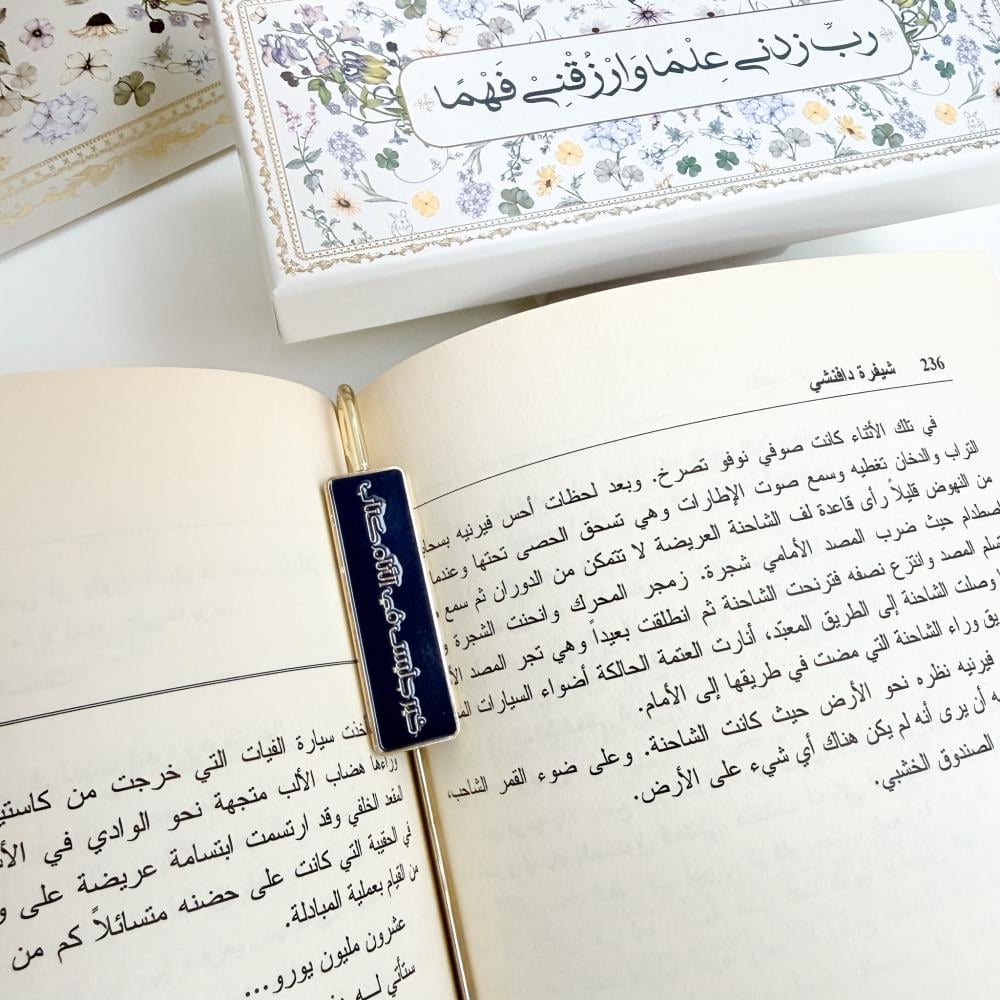 رَبِّ زِدْنِي عِلْمًا وَارْزُقْنِي فَهْمًا
236 شيفرة دافنشي
في تلك الأثناء كانت صوفي نوفو تصرخ. وبعد لحظات أحس فيرنيه بسحابة
التراب والدخان تغطيه وسمع صوت الإطارات وهي تسحق الحصى تحتها وعندما
من النهوض قليلاً رأى قاعدة لف الشاحنة العريضة لا تتمكن من الدوران ثم سمع
حيث ضرب المصد الأمامي شجرة. زمجر المحرك وانحنت الشجرة
المصد وانتزع نصفه فترنحت الشاحنة ثم انطلقت بعيداً وهي تجر المصد
وصلت الشاحنة إلى الطريق المعبّد، أنارت العتمة الحالكة أضواء السيارات
وراء الشاحنة التي مضت في طريقها إلى الأمام.
فيرنيه نظره نحو الأرض حيث كانت الشاحنة. وعلى ضوء القمر الشاحب،
أن يرى أنه لم يكن هناك أي شيء على الأرض.
الصندوق الخشبي.
خير جليس في الأنام كتاب
سيارة الفيات التي خرجت من
وراءها هضاب الألب متجهة نحو الوادي في
المقعد الخلفي وقد ارتسمت ابتسامة عريضة على
في الحقيبة التي كانت على حضنه متسائلاً كم من
من القيام بعملية المبادلة.
عشرون مليون يورو...
ستأتي له